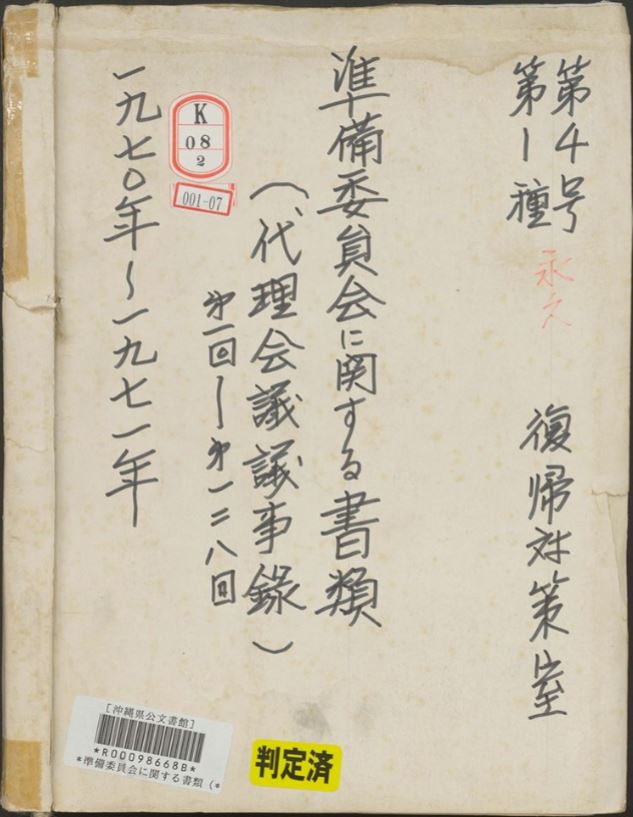 第4号
第1種
永久
復帰対策室
準備委員会に関する書類
（代理会議議事録）
第一回〜第一二八回
一九七〇年〜一九七一年
K
08
2
001-07
[沖縄県公文書館]
*R00098668B*
*準備委員会に関する書類 (*
判定済